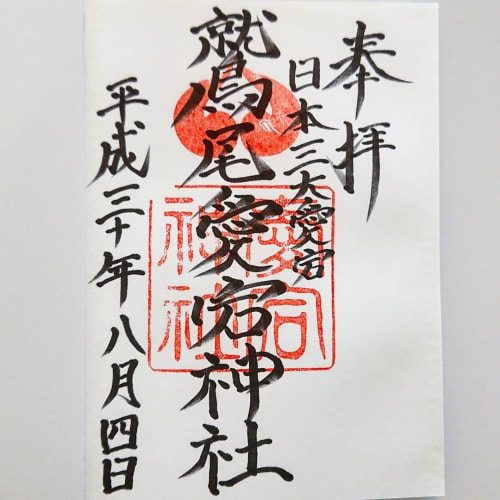 奉拝
日本三大愛宕
鷲尾愛宕神社
平成三十年八月四日
愛宕神社